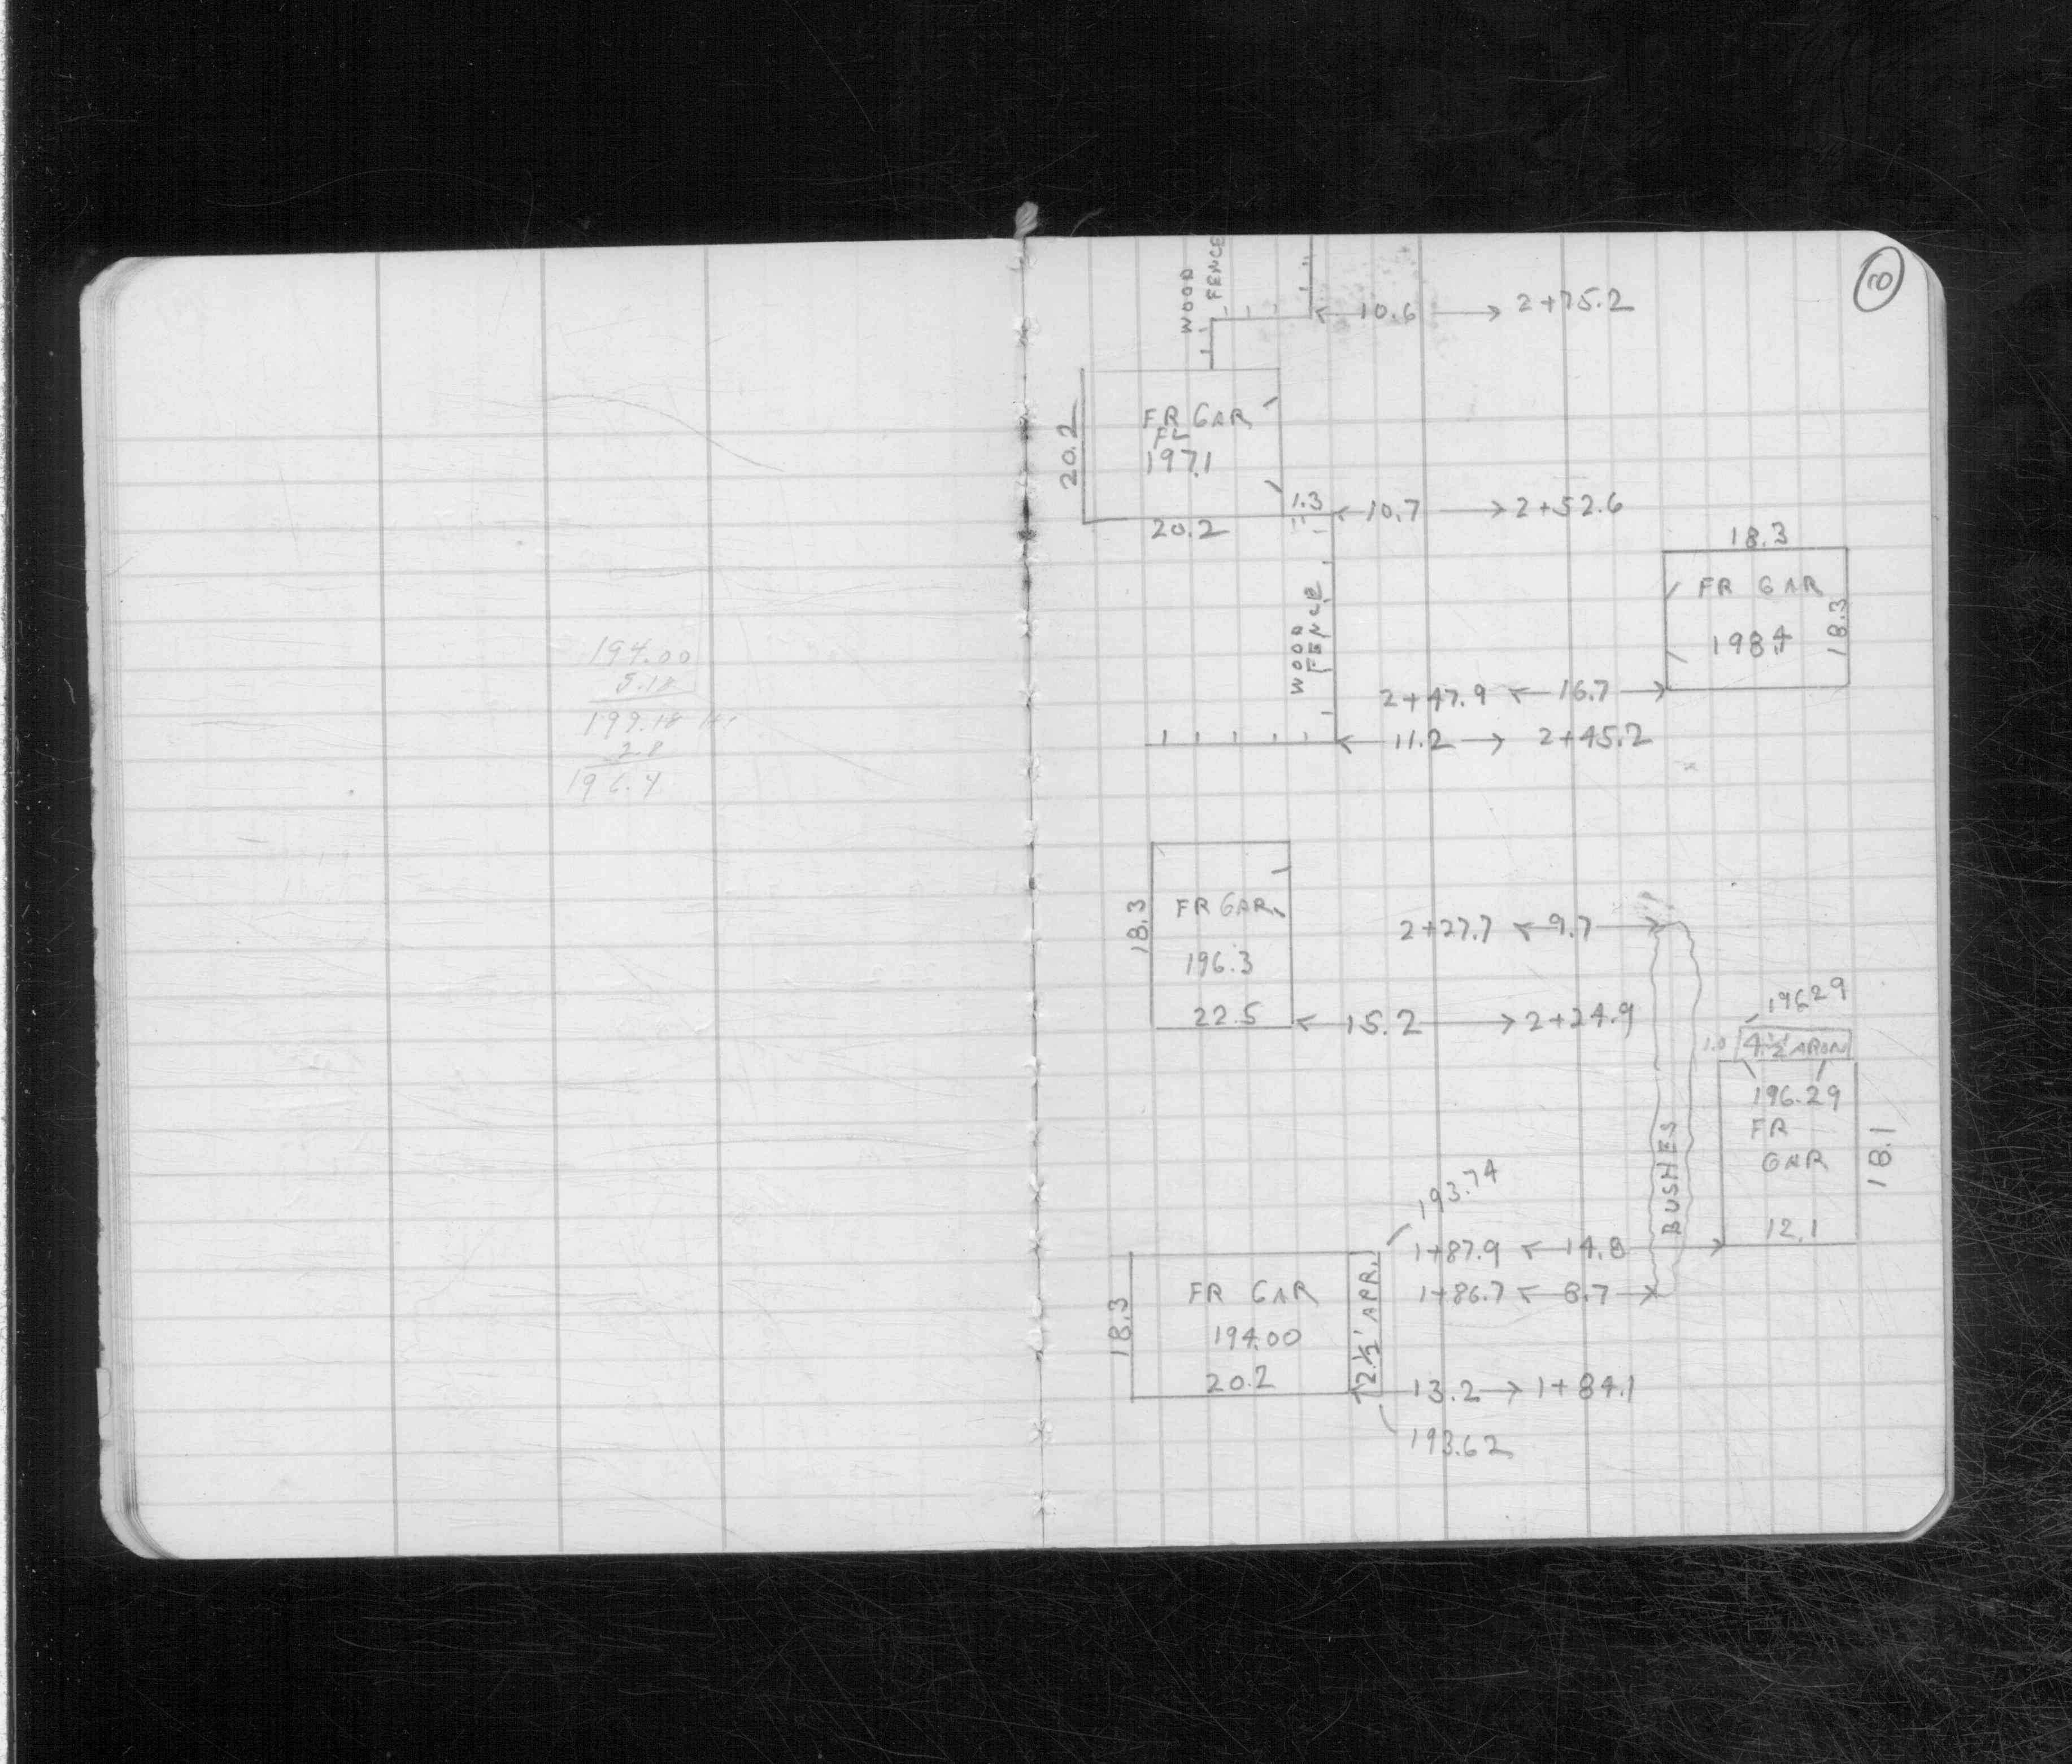 194.00
5.18
199.18 H.
2.8
196.4
WOOD
FENCE
10.6 2+75.2
20.2
FR GAR
FL
197.1
20.2
1.3
10.7 2+52.6
18.3
FR GAR
198.4
18.3
WOOD
FENCE
2+47.9 16.7
11.2 2+45.2
18.3
FR GAR
196.3
22.5
2+27.7 9.7
15.2 2+24.9
BUSHES
196.29
1.0
4½' ARON
196.29
FR
GAR
12.1
18.1
193.74
1+87.9 14.8
1+86.7 8.7
18.3
FR GAR
194.00
20.2
2½' APR.
13.2 1+84.1
193.62